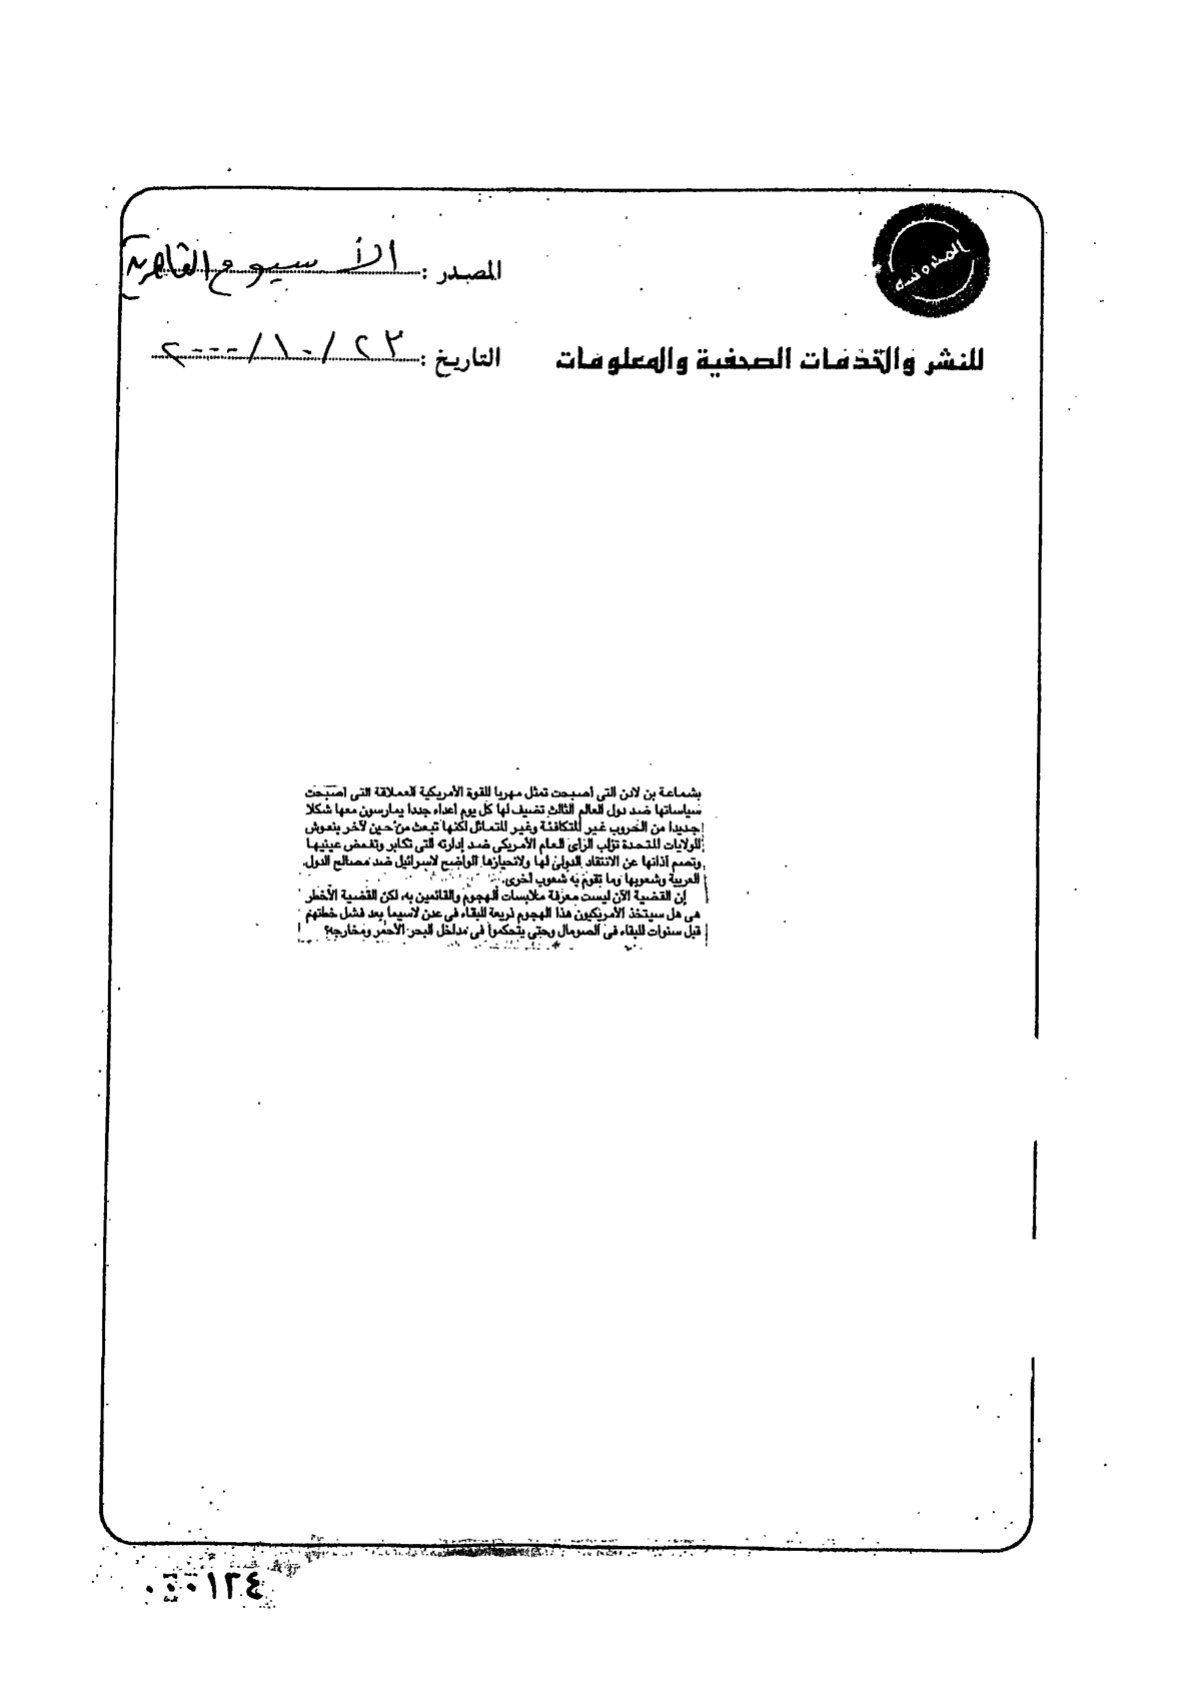 المصدر : الأسبوع القاهرية
للنشر والخدمات الصحفية والمعلومات
التاريخ : ٢٣/١٠/٢٠٠٠
بشماعة بن لادن التى أصبحت تمثل مهربا للقوة الأمريكية العملاقة التى أصبحت
سياساتها ضد دول العالم الثالث تضيف لها كل يوم أعداء جددا يمارسون معها شكلا
جديدا من الحروب غير المتكافئة وغير المتماثل لكنها تبعث من حين لآخر بنعوش
للولايات المتحدة تؤلب الرأى العام الأمريكى ضد إدارته التى تكابر وتغمض عينيها
وتصم آذانها عن الانتقاد الدولى لها ولانحيازها الواضح لاسرائيل ضد مصالح الدول
العربية وشعوبها وما تقوم به شعوب أخرى.
إن القضية الآن ليست معرفة ملابسات الهجوم والقائمين به، لكن القضية الأخطر
هى هل سيتخذ الأمريكيون هذا الهجوم ذريعة للبقاء فى عدن لاسيما بعد فشل خطتهم
قبل سنوات للبقاء فى الصومال وحتى يتحكموا فى مداخل البحر الأحمر ومخارجه؟
٠٠٠١٢٤